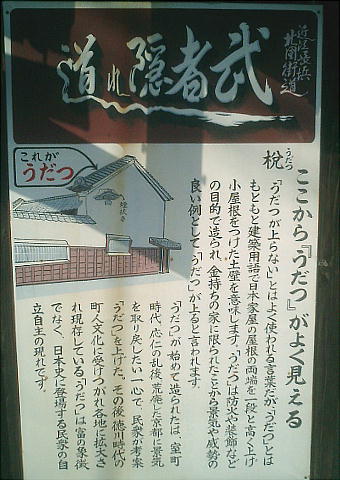 近江長浜
北国街道
武者隠れ道
ここから『うだつ』がよく見える
うだつ
梲
「うだつが上らない」とはよく使われる言葉だが、「うだつ」とは
もともと建築用語で日本家屋の屋根の両端を一段と高く上げ
小屋根をつけた土壁を意味します。「うだつ」は防火や装飾など
の目的で造られ、金持ちの家に限られたことから景気や威勢の
良い例として「うだつ」が上ると言われます。
これが
うだつ
「うだつ」が始めて造られたは、室町
時代、応仁の乱後、荒廃した京都に景気
を取り戻したい一心で、民衆が考案
「うだつ」を上げた。その後徳川時代の
町人文化に受けつがれ各地に拡大さ
れ現存している「うだつ」は富の象徴
でなく、日本史に登場する民衆の自
立自主の現れです。